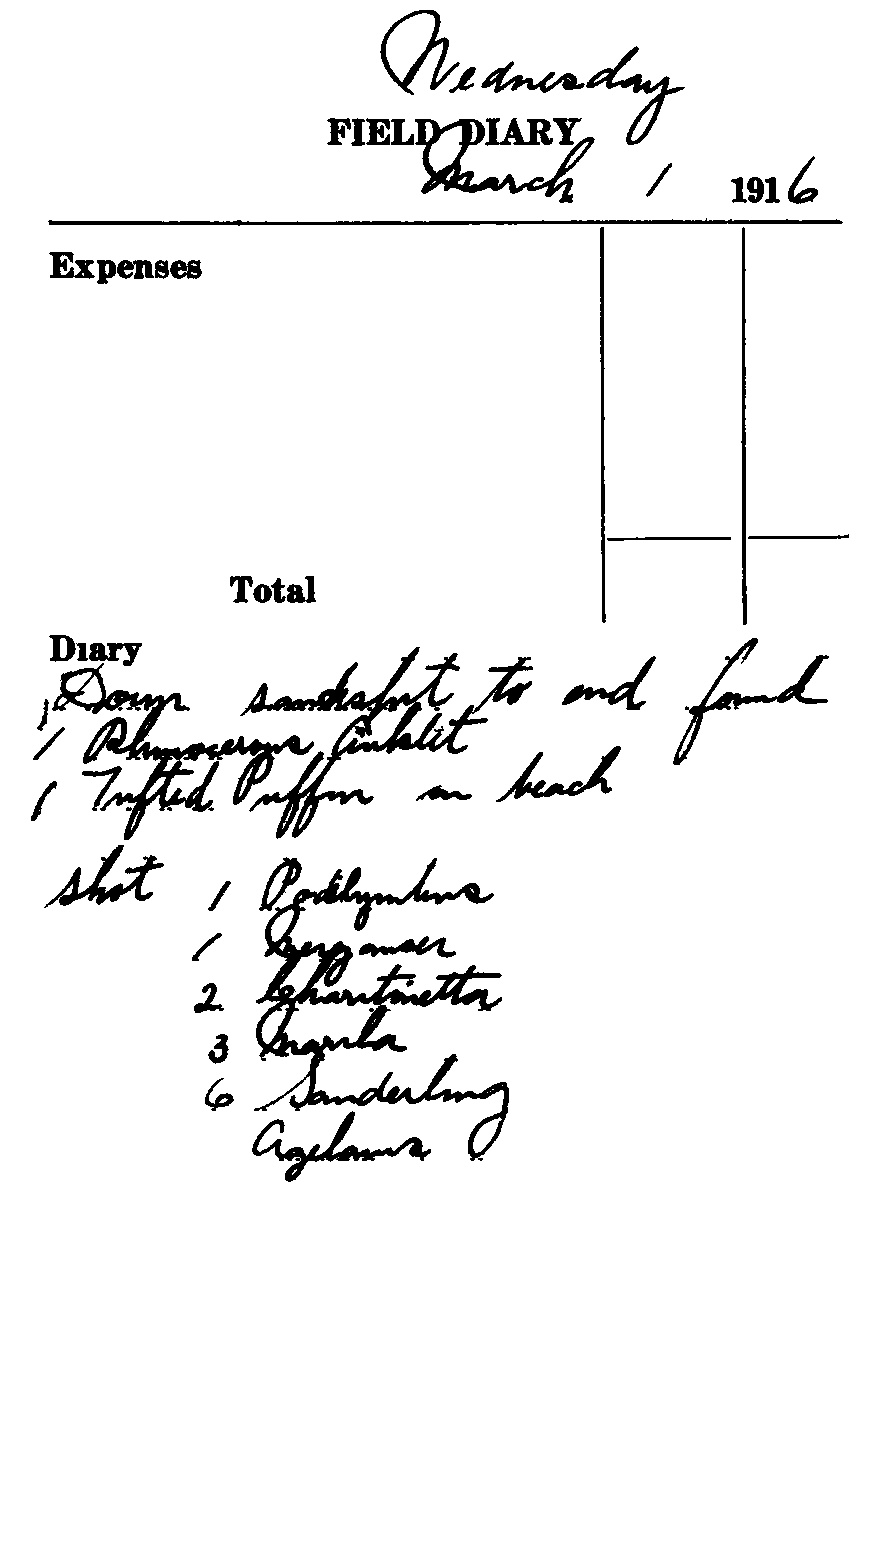 Wednesday
FIELD DIARY
March 1 1916
Expenses
Total
Diary
Down sandspit to end found
1 Rhinocerous Auklet
1 Tufted Puffin on beach
shot 1 Podilymbus
1 Merganser
2 Charitonetta
3 Marila
6 Sanderling
Agelaius